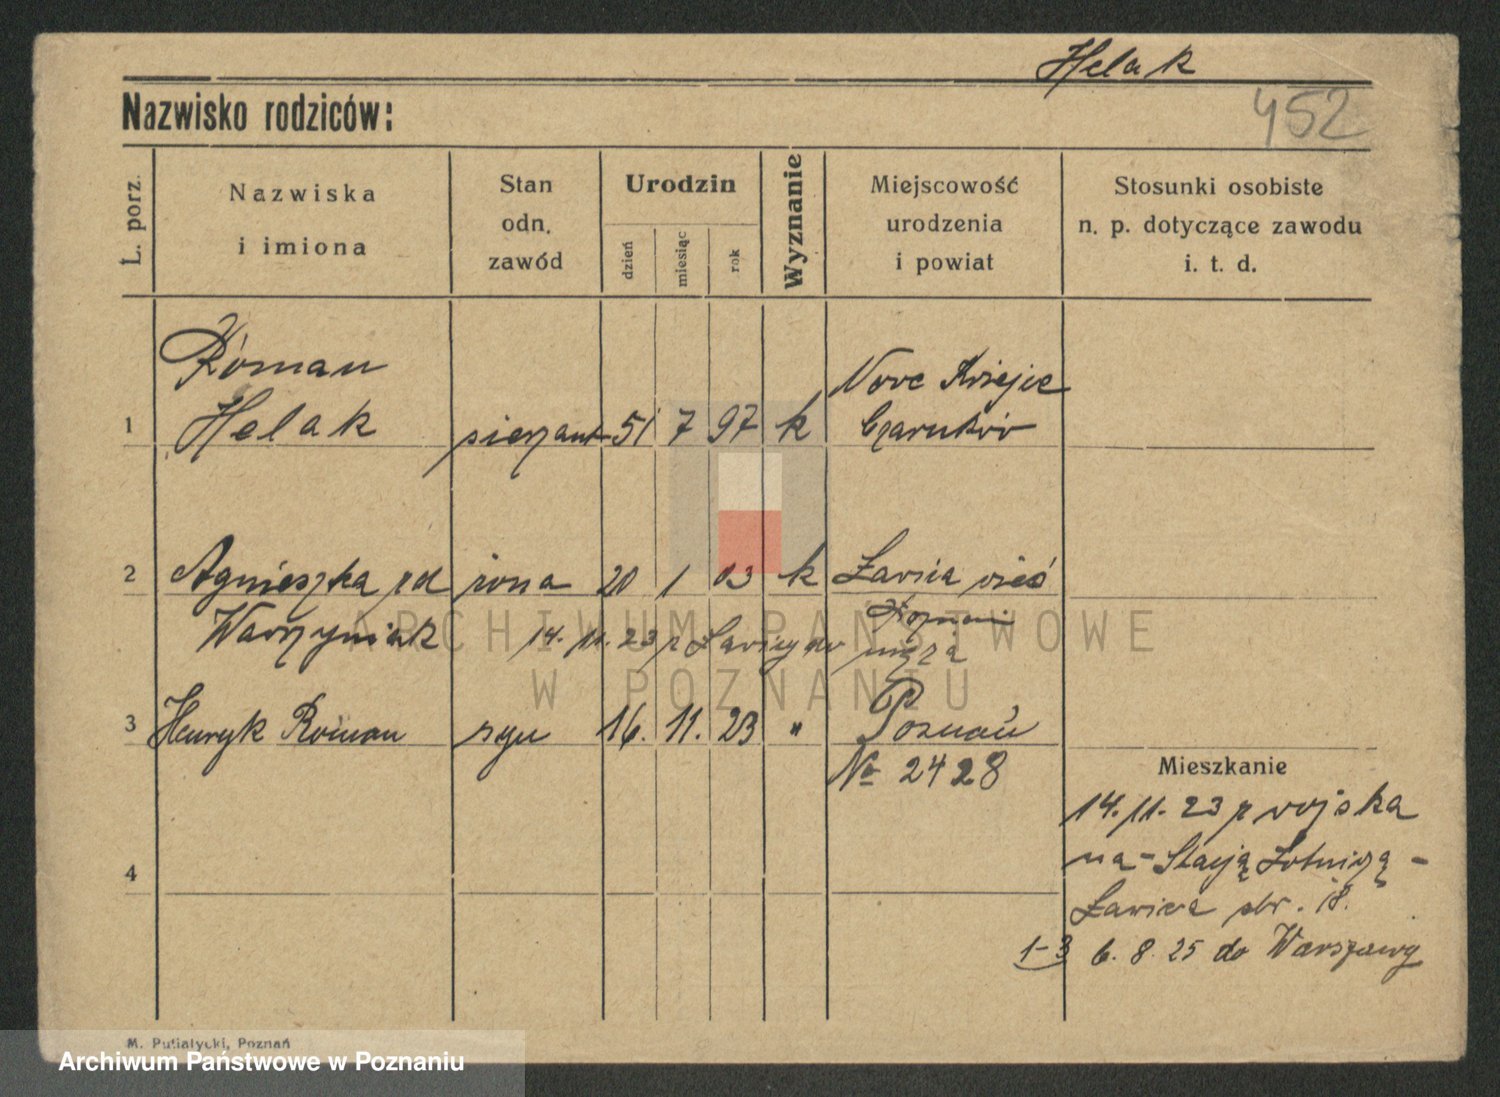 Helak
Nazwisko rodziców:
452
L. porz.
Nazwiska
i imiona
Stan
odn.
zawód
Urodzin
dzień
miesiąc
rok
Wyznanie
Miejscowość
urodzenia
i powiat
Stosunki osobiste
n. p. dotyczące zawodu
i. t. d.
Roman Nowe
1 Helak 7 97 k Czarnków
2 Agnieszka żona 20 1 03 k Ławica wieś
Warzyniak 14. 11. 23 z Ławicy do męża
3 Henryk Roman syn 16. 11. 23 " Poznań
№ 2428
Mieszkanie
14. 11. 23 z wojska
na - Stację Lotniczą -
4
Ławica 18.
1-3 6. 8. 25 do Warszawy
M. Putiatycki, Poznań
ARCHIWUM PAŃSTWOWE
W POZNANIU
Archiwum Państwowe w Poznaniu